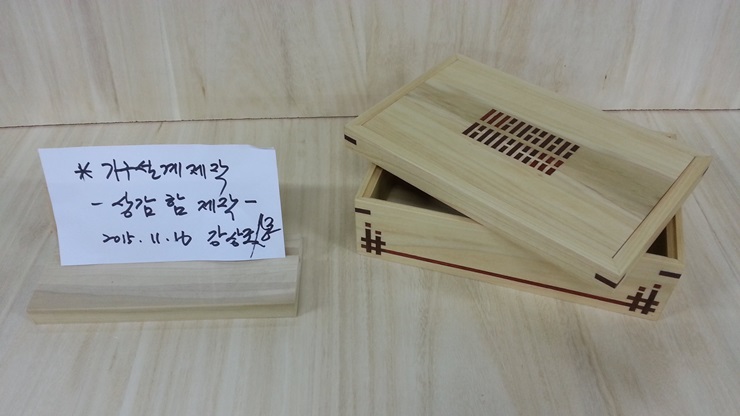 * 가구설계제작
- 상감 함 제작 -
2015. 11. 16 강상조